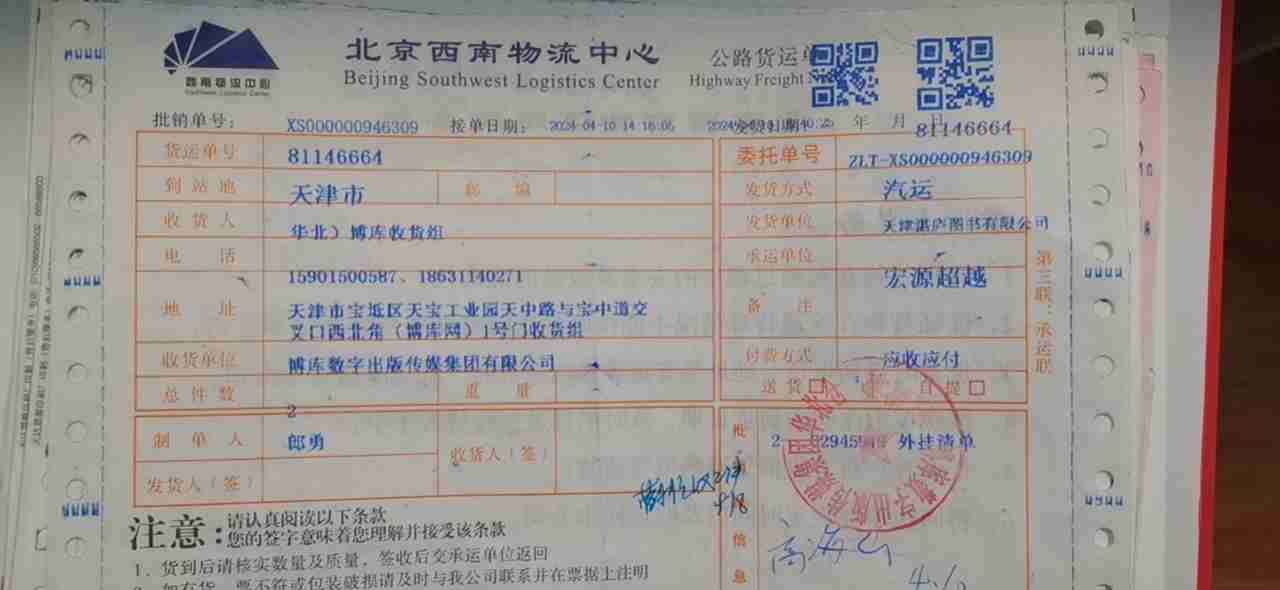 北京西南物流中心
Beijing Southwest Logistics Center
公路货运单
Highway Freight
西南物流中心
Southwest Logistics Center
批销单号： XS000000946309 接单日期： 2024-04-10 14 16:05 发货日期 年 月 日
81146664
货运单号 81146664 委托单号 ZLT-XS000000946309
到站地 天津市 邮 编 发货方式 汽运
收货人 华北）博库收货组 发货单位 天津湛庐图书有限公司
电 话 15901500587、18631140271 承运单位 宏源超越
地 址 天津市宝坻区天宝工业园天中路与宝中道交
叉口西北角（博库网）1号门收货组
备 注
收货单位 博库数字出版传媒集团有限公司 付款方式 应收应付
总件数 2 重 量 送货 自提
制单人 郎勇 收货人（签） 批 2 外挂清单
发货人（签）
信
息
第三联：承运联
高海
注意：
请认真阅读以下条款
您的签字意味着您理解并接受该条款
1. 货到后请核实数量及质量，签收后交承运单位返回
2. 如有货、票不符或包装破损请及时与我公司联系并在票据上注明